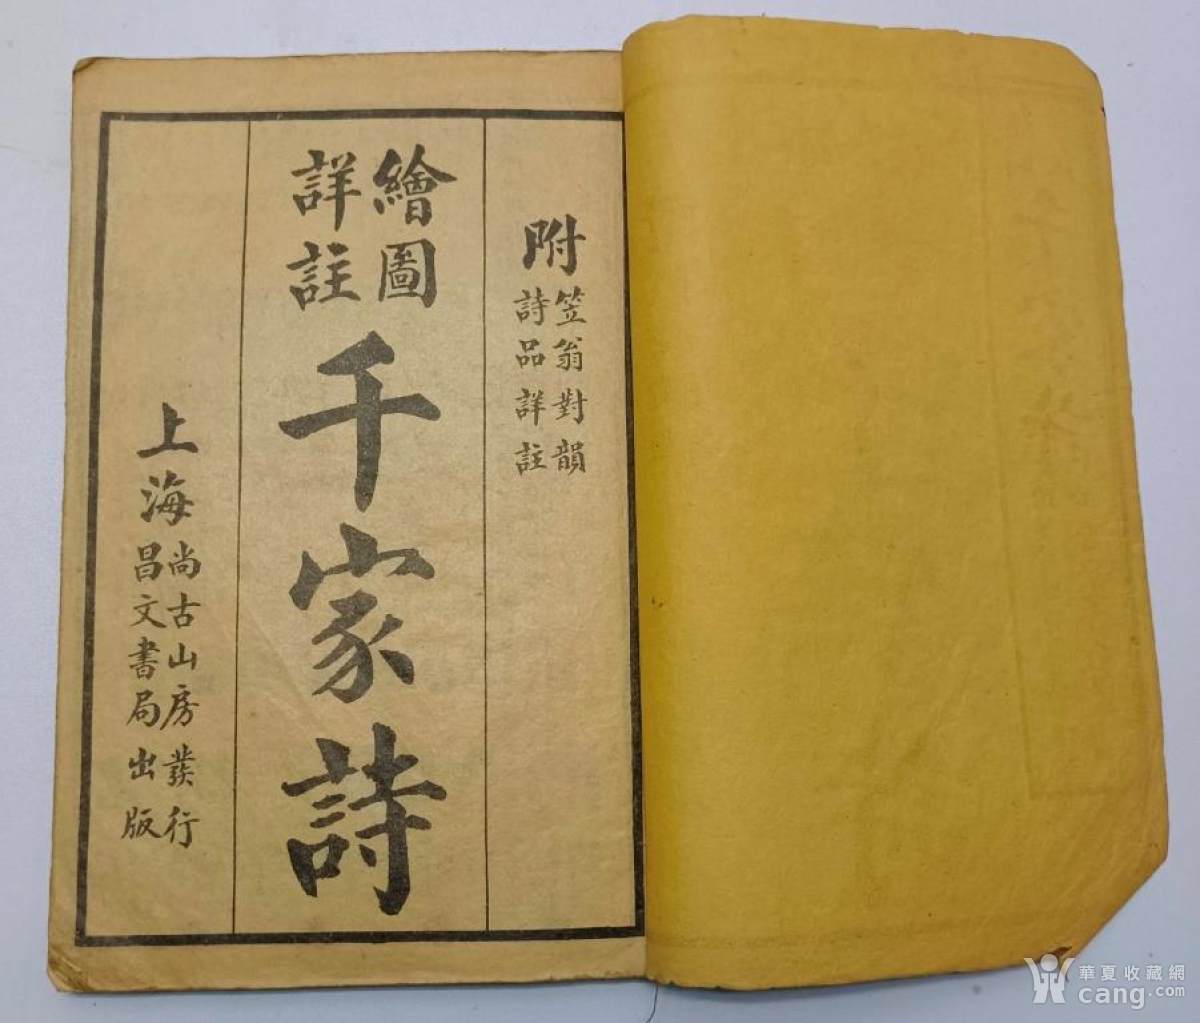 附
笠翁對韻
詩品詳註
繪圖
詳註
千家詩
上海
尚古山房發行
昌文書局出版
華夏收藏網
cang.com